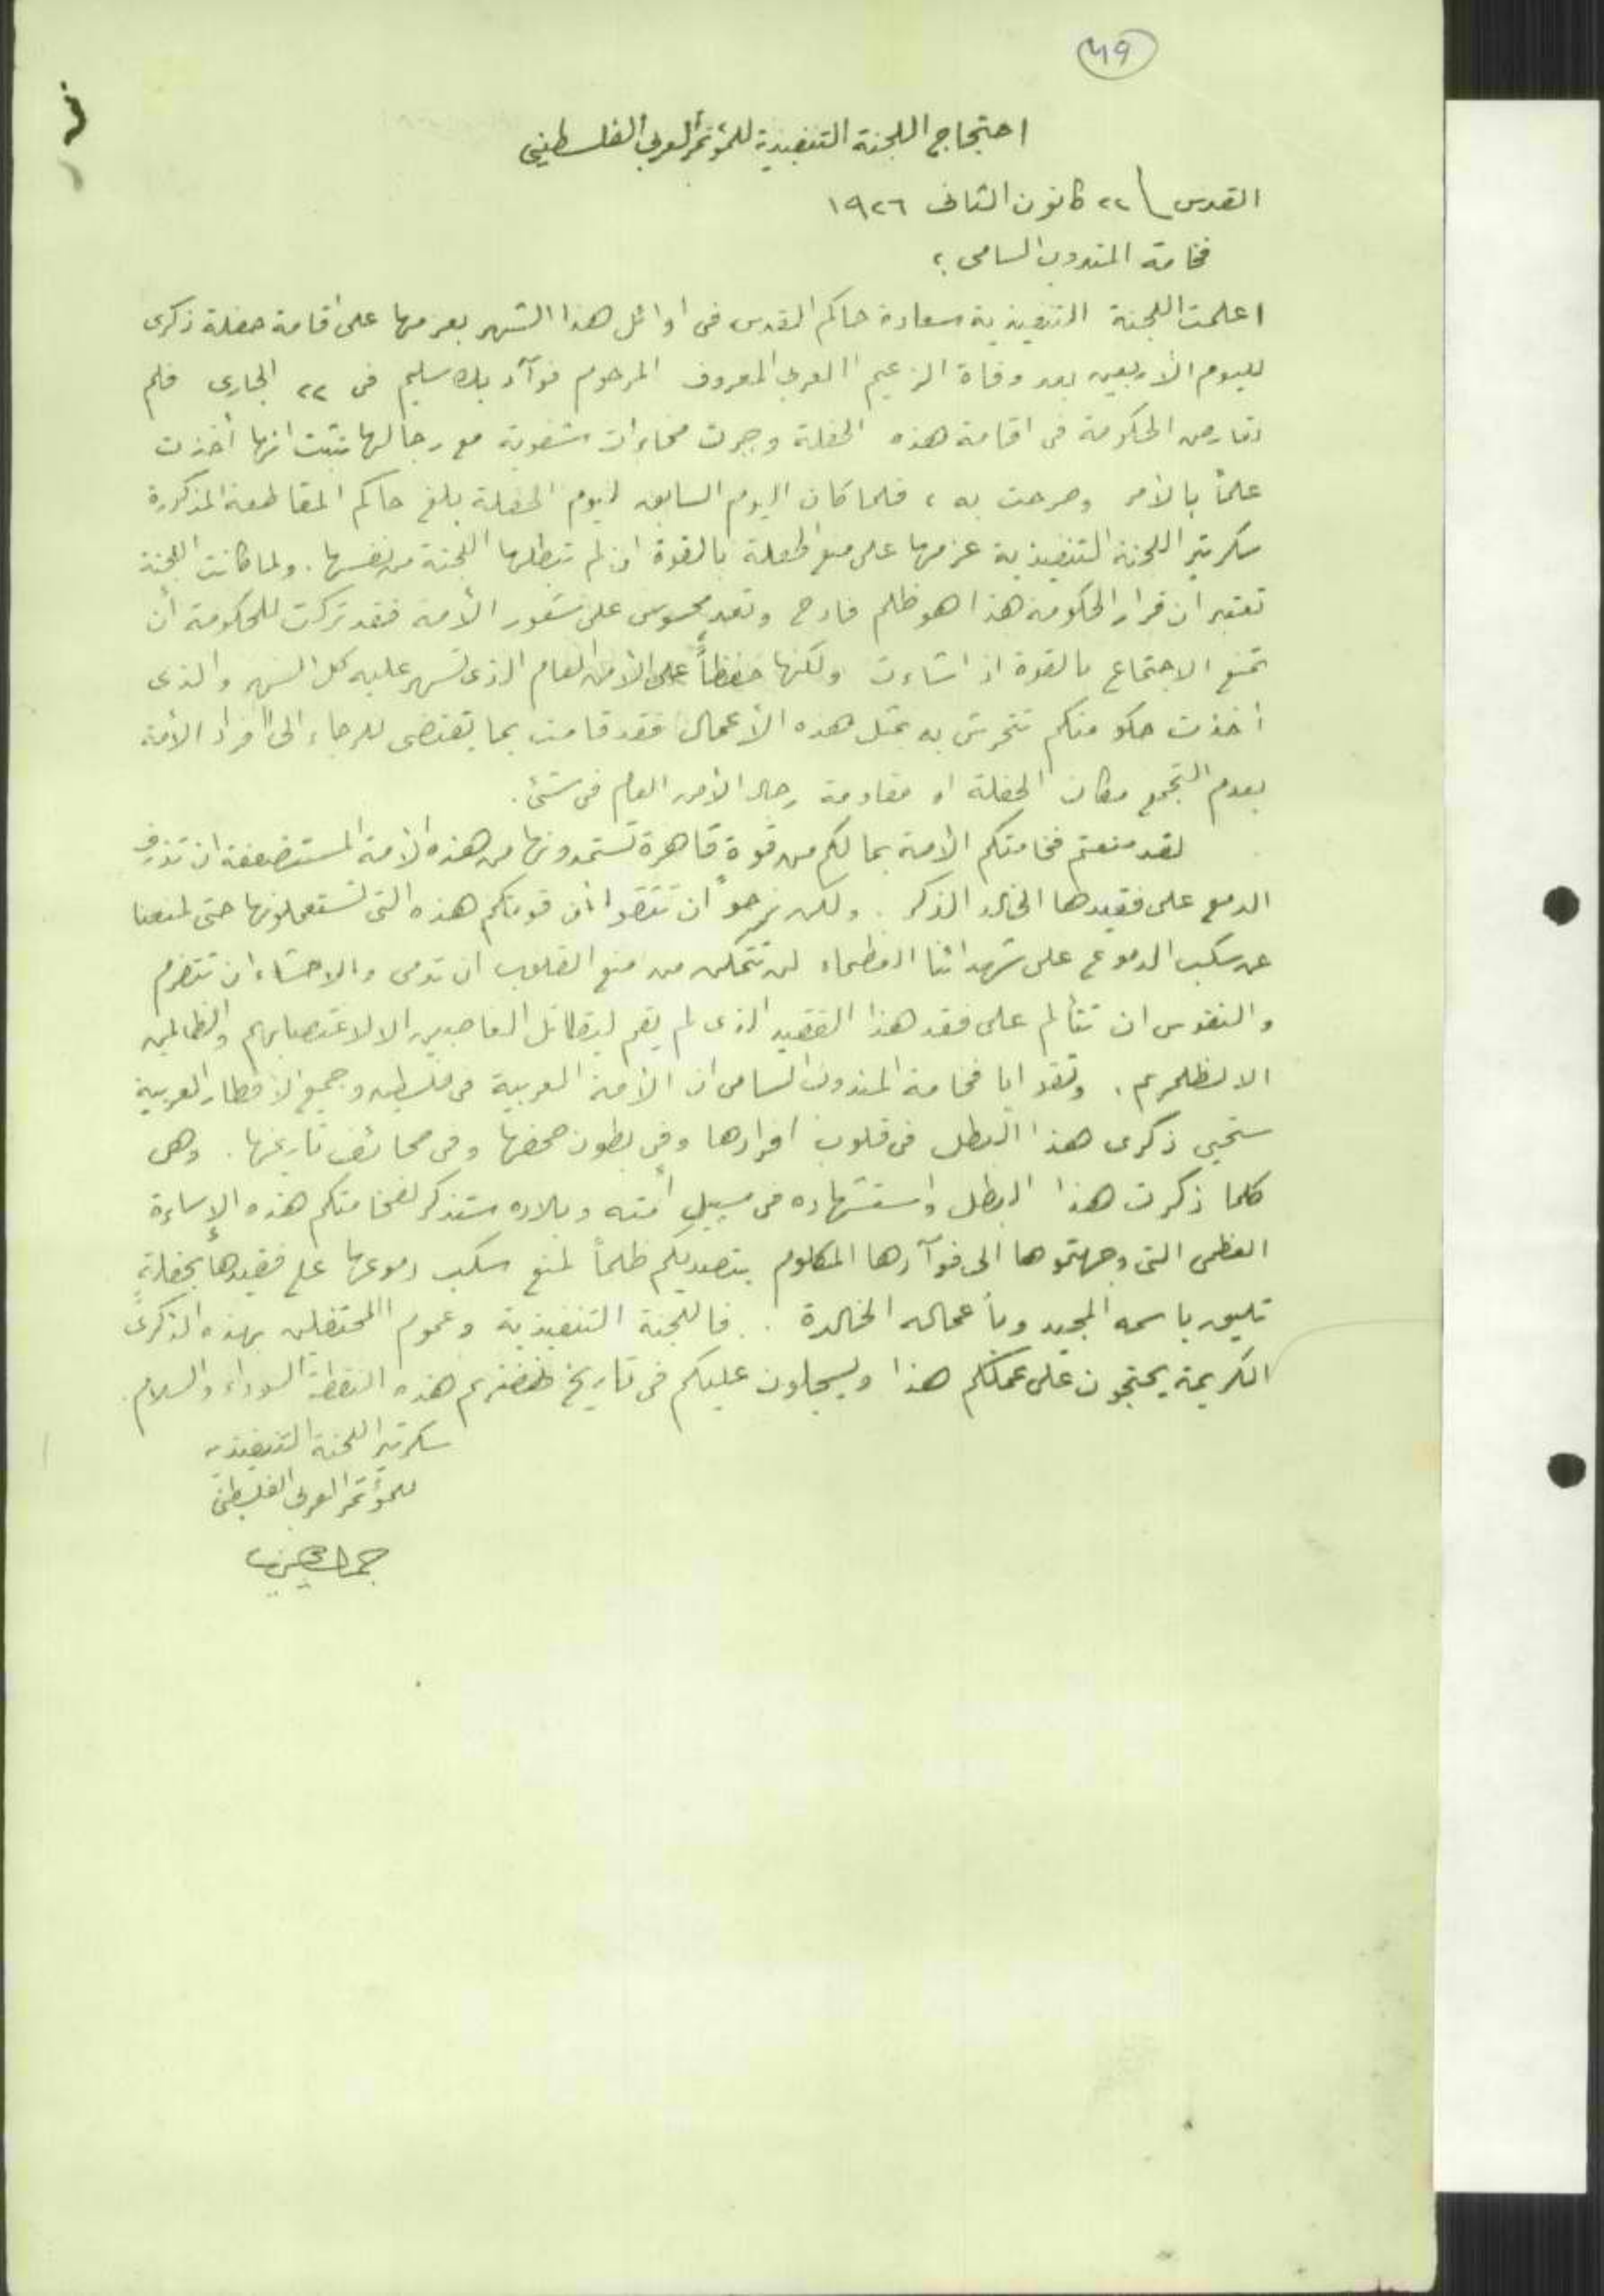 49
احتجاج اللجنة التنفيذية للمؤتمر العربي الفلسطيني
القدس \ ٢٢ كانون الثاني ١٩٢٦
فخامة المندوب السامي ؛
اعلمت اللجنة التنفيذية سعادة حاكم القدس في اوائل هذا الشهر بعزمها على اقامة حفلة ذكرى
لليوم الأربعين بعد وفاة الزعيم العربي المعروف المرحوم فوآد بك سليم في ٢٢ الجاري فلم
تعارض الحكومة في اقامة هذه الحفلة وجرت مخابرات شفوية مع رجالها تثبت انها أخذت
علماً بالأمر وصرحت به ، فلما كان اليوم السابق ليوم الحفلة بلغ حاكم المقاطعة المذكورة
سكرتير اللجنة التنفيذية عزمها على منع الحفلة بالقوة ان لم تبطلها اللجنة من نفسها . ولما كانت اللجنة
تعتبر ان قرار الحكومة هذا هو ظلم فادح وتعدٍ محسوس على شعور الأمة فقد تركت للحكومة أن
تمنع الاجتماع بالقوة اذا شاءت ولكنها حفظاً على الأمن العام الذي تسهر عليه كل السهر والذي
أخذت حكومتكم تتحرش به بمثل هذه الأعمال فقد قامت بما يقتضي للرجاء الى افراد الأمة
بعدم التجمع مكان الحفلة او مقاومة رجال الأمن العام في شئ .
لقد منعتم فخامتكم الأمة بما لكم من قوة قاهرة تستمدونها من هذه الأمة المستضعفة ان تذرف
الدمع على فقيدها الخالد الذكر . ولكن نرجو ان تثقوا أن قوتكم هذه التي تستعملونها حتى لمنعنا
عن سكب الدموع على شهدائنا العظماء لن تتمكن من منع القلوب ان تدمى والاحشاء ان تتضرم
والنفوس ان تتألم على فقد هذا الفقيد الذي لم يقم ليقاتل الغاصبين الا لاغتصابهم والظالمين
الا لظلمهم . وثقوا يا فخامة المندوب السامي ان الأمة العربية في فلسطين وجميع الأقطار العربية
ستحيي ذكرى هذا البطل في قلوب افرادها وفي بطون صحفها وفي صحائف تاريخها . وهي
كلما ذكرت هذا البطل واستشهاده في سبيل أمته وبلاده ستذكر لفخامتكم هذه الإساءة
العظمى التي وجهتموها الى فوآدها المكلوم بتصديكم ظلماً لمنع سكب دموعها على فقيدها بحفلةٍ
تليق باسمه المجيد وبأعماله الخالدة . فاللجنة التنفيذية وعموم المحتفلين بهذه الذكرى
الكريمة يحتجون على عملكم هذا ويسجلون عليكم في تاريخ هذه النقطة السوداء والسلام .
سكرتير اللجنة التنفيذية
للمؤتمر العربي الفلسطيني
جمال الحسيني